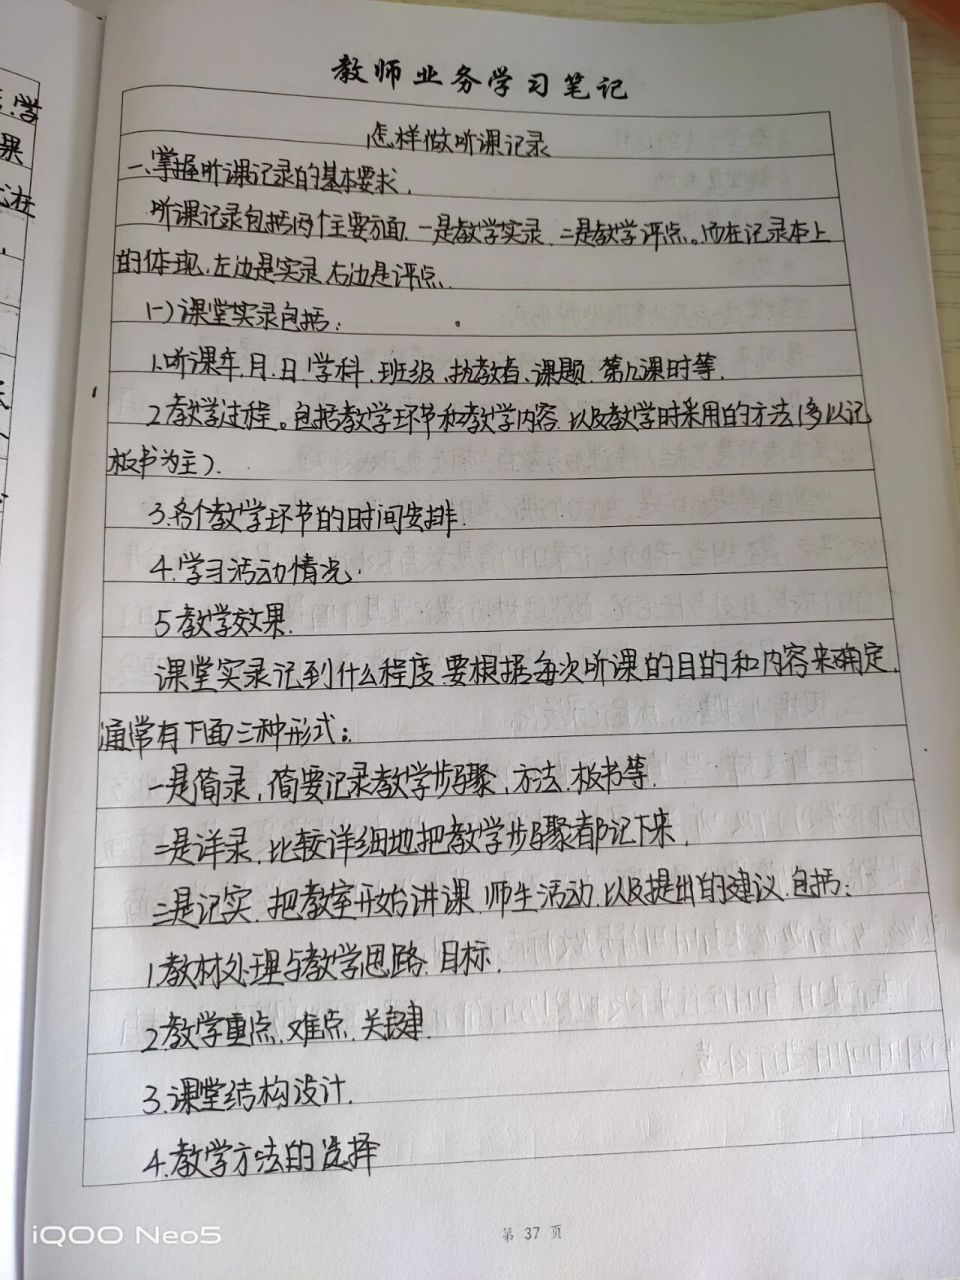 教师业务学习笔记
怎样做听课记录
一、掌握听课记录的基本要求.
听课记录包括两个主要方面.一是教学实录.二是教学评点。而在记录本上
的体现.左边是实录右边是评点.
(一)课堂实录包括:
1.听课年.月.日.学科.班级.执教者.课题.第几课时等.
2教学过程。包括教学环节和教学内容.以及教学时采用的方法(多以记
板书为主).
3.各个教学环节的时间安排.
4.学习活动情况.
5教学效果.
课堂实录记到什么程度.要根据每次听课的目的和内容来确定.
通常有下面三种形式:
一是简录,简要记录教学步骤,方法.板书等.
二是详录,比较详细地把教学步骤都记下来.
三是记实.把教室开始讲课.师生活动.以及提出的建议.包括:
1.教材处理与教学思路.目标.
2.教学重点.难点.关键.
3.课堂结构设计.
4.教学方法的选择
第 37 页
iQOO Neo5
学
果